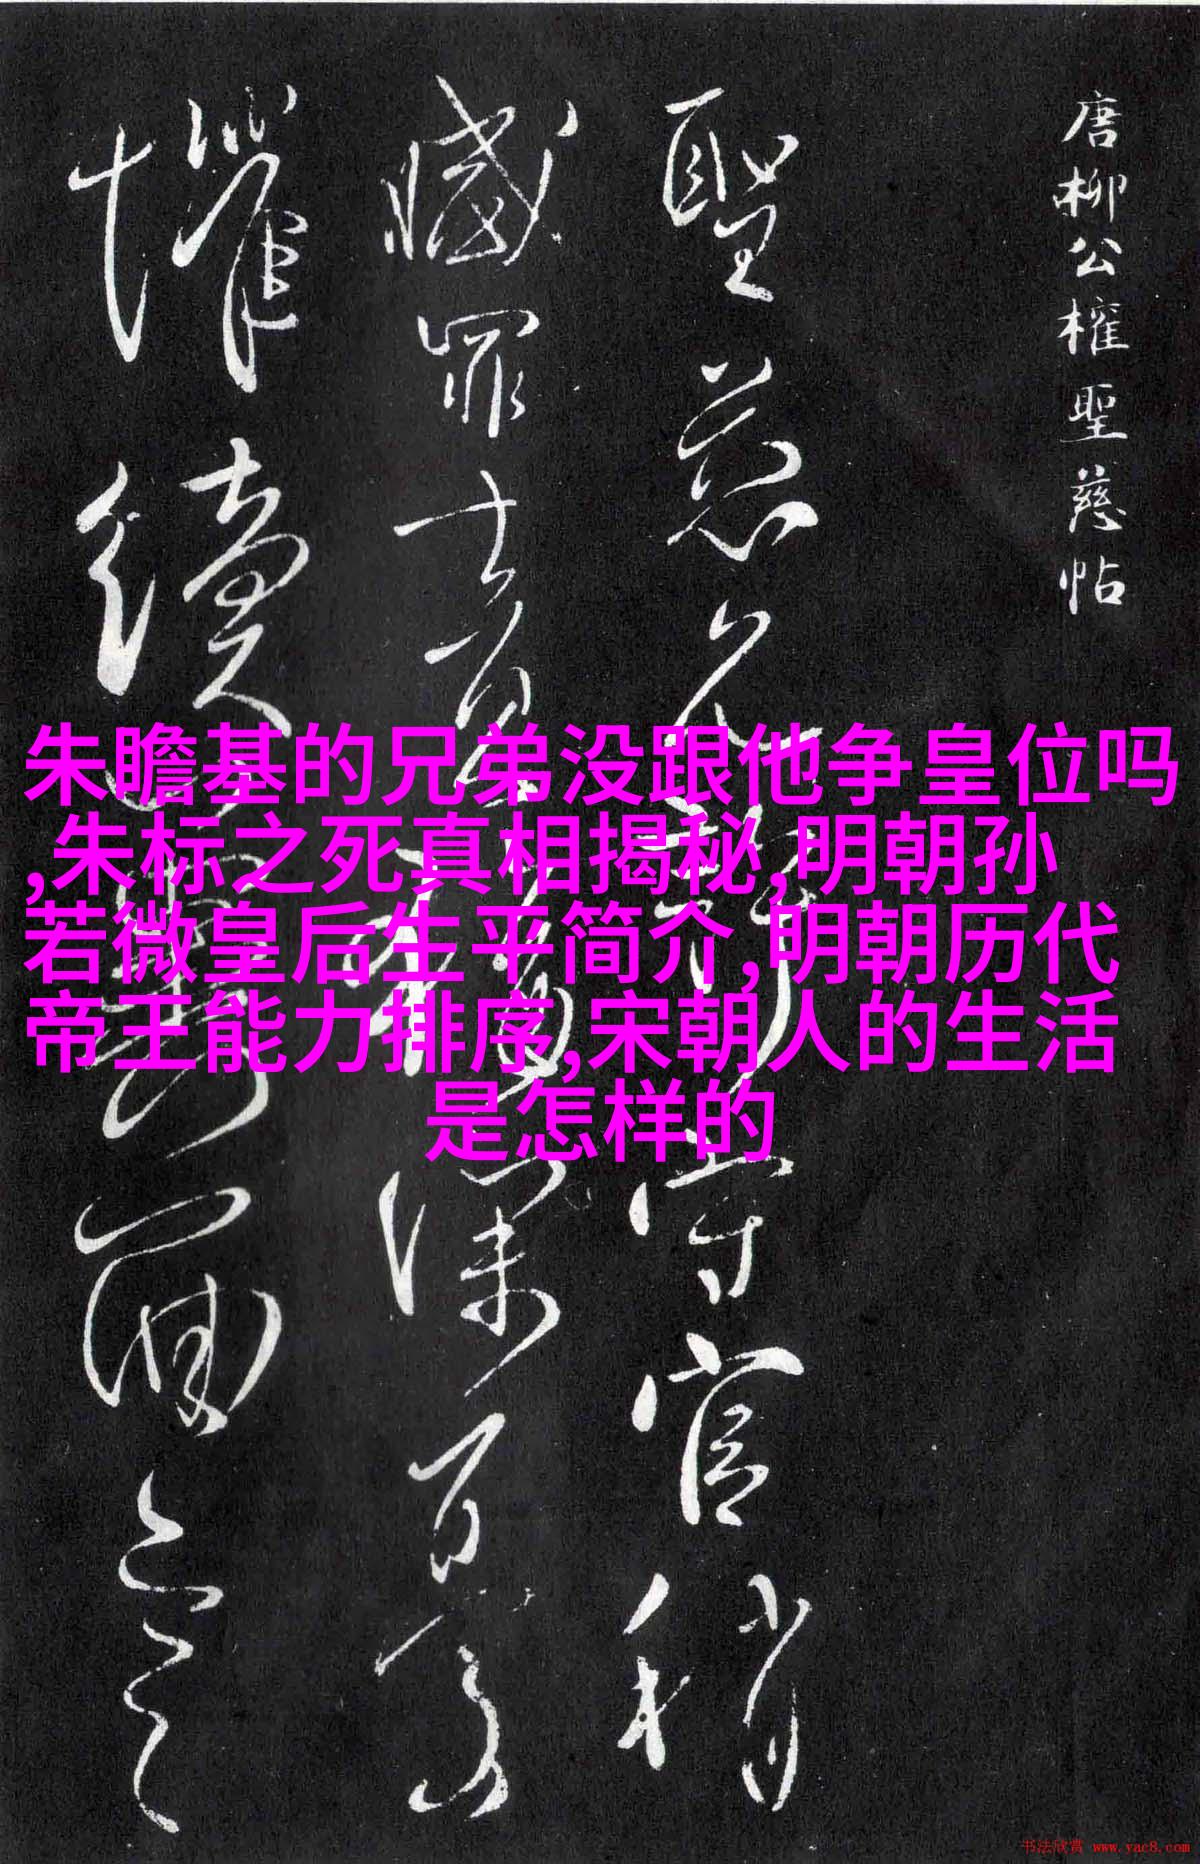 唐柳公權聖慈帖
聖慈允守官稍
減罪責深万幸
懼續
朱瞻基的兄弟没跟他争皇位吗
,朱标之死真相揭秘,明朝孙
若微皇后生平简介,明朝历代
帝王能力排序,宋朝人的生活
是怎样的
书法欣赏 www.yac8.com